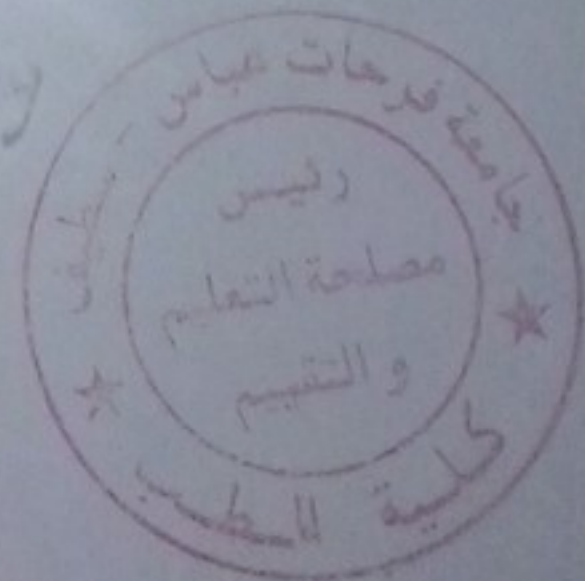 جامعة فرحات عباس - سطيف
رئيس
مصلحة التعليم
و التقييم
كلية الطب